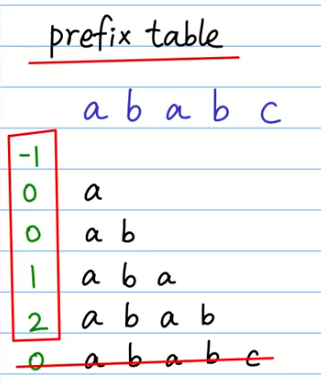 prefix table
a b a b c
-1
0 a
0 a b
1 a b a
2 a b a b
0 a b a b c